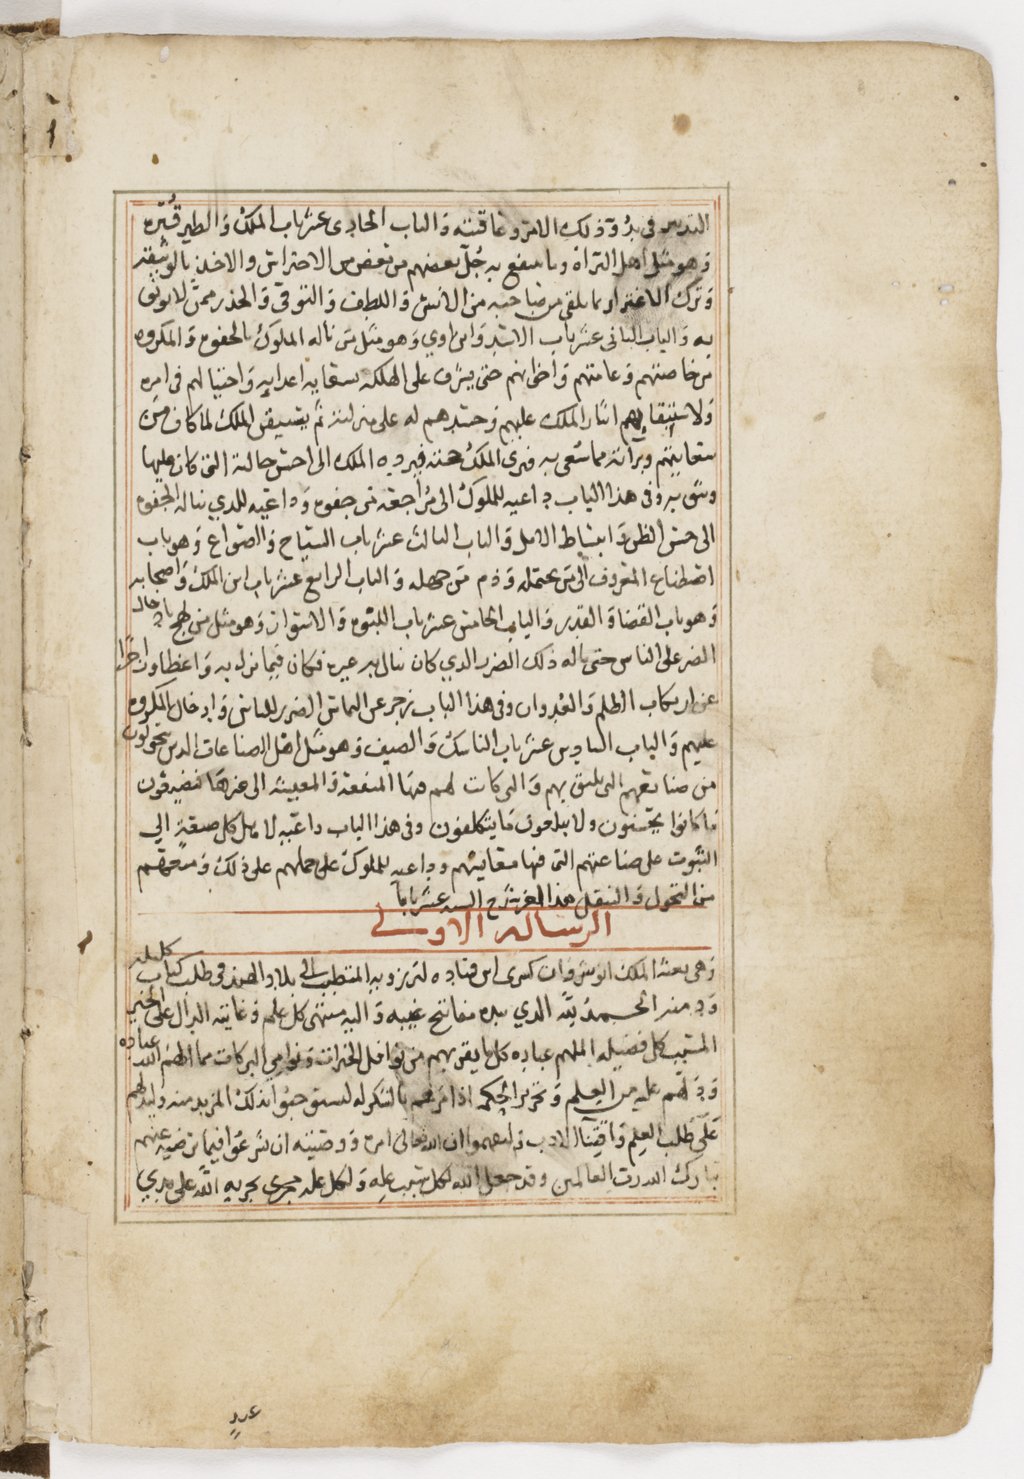 في بدو ذلك الامر وعاقبته والباب الحادي عشر باب الملك والطير قبرة
وهو مثل اهل التراة وما ينفع به جل بعضهم من بعض من الاحتراس والاخذ بالوثيقة
وترك الاغترار بما يلقى من صاحبه من الانس واللطف والتوقي والحذر ممن لا يوثق
به والباب الثاني عشر باب الاسد وابن اوي وهو مثل من ناله الملوك بالجفوه والمكروه
من خاصتهم وعامتهم حتى على الهلكه اعدايه واحتيالهم في امره
الملك عليهم وحسدهم له على منزلته ثم الملك لما كان من
وبرآته مما سعى به الملك فيرده الملك الى احسن حالته التي كان عليها
وفي هذا الباب داعيه للملوك الى مراجعة من جفوه وداعيه للذي يناله الجفوه
الى حسن الظن وانبساط الامل والباب الثالث عشر باب السياح والصواغ وهو باب
اصطناع المعروف الى من يحتمله وذم من جهله والباب الرابع عشر باب ابن الملك واصحابه
وهو باب القضا والقدر والباب الخامس عشر باب اللبوه والاسوار وهو مثل من لهج بادخال
الضر على الناس حتى ناله ذلك الضر الذي كان ينال به غيره فكان فيما نزل به واعظا
عن ارتكاب الظلم والعدوان وفي هذا الباب زجر عن التماس الضرر للناس وادخال المكروه
عليهم والباب السادس عشر باب الناسك والضيف وهو مثل اهل الصناعات الذين يتحولون
من صنايعهم التي تليق بهم والتي كانت لهم فيها المنفعة والمعيشه الى غيرها فيضيعون
ما كانوا يحسنون ولا يبلغون ما يتكلفون وفي هذا الباب داعيه لاهل كل صنعة الي
الثبوت على صناعتهم التي فيها معايشهم وداعيه للملوك على حملهم على ذلك ومنعهم
من التحول والتنقل هذا اخر شرح الستة عشر بابا
الرسالة الاولى
وهي بعثة الملك انوشروان كسرى ابن قباد لبرزويه المتطبب الى بلاد الهند في طلب كتاب كليله
ودمنه الحمد لله الذي بيده مفاتح غيبه واليه منتهى كل علم وغايته الدال على الخير
المسبب كل فضيله الملهم عباده كل ما يقربهم من نوافل الخيرات ونوامي البركات مما الهم الله عباده
ودلهم عليه من العلم اذ امرهم بالشكر له ليستوجبوا بذلك المزيد منه
على طلب العلم واقتنآ الادب
تبارك الله رب العالمين وقد جعل الله لكل سبب عله ولكل عله مجرى يجريه الله على يدي
عبد